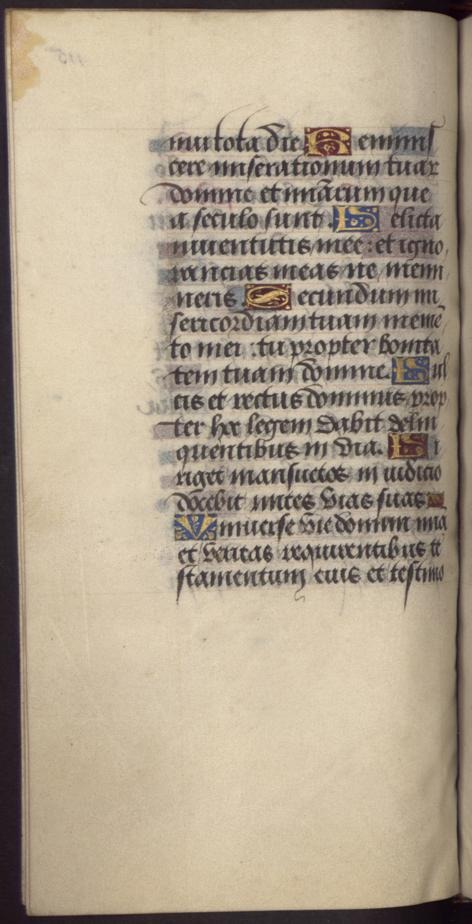 nui tota die. Reminis
cere miserationum tuarꝝ
domine et mĩarum que
a seculo sunt. Delicta
iuuentutis mee: et igno
rancias meas ne memi
neris. Secundum mi
sericordiam tuam memẽ
to mei: tu propter bonita
tem tuam domine. Dul
cis et rectus dominus prop
ter hoc legem dabit delin
quentibus in via. Di
riget mansuetos in iudicio
docebit mites vias suas
Vniuerse vie domini mĩa
et veritas requirentibus te
stamentum eius et testimo